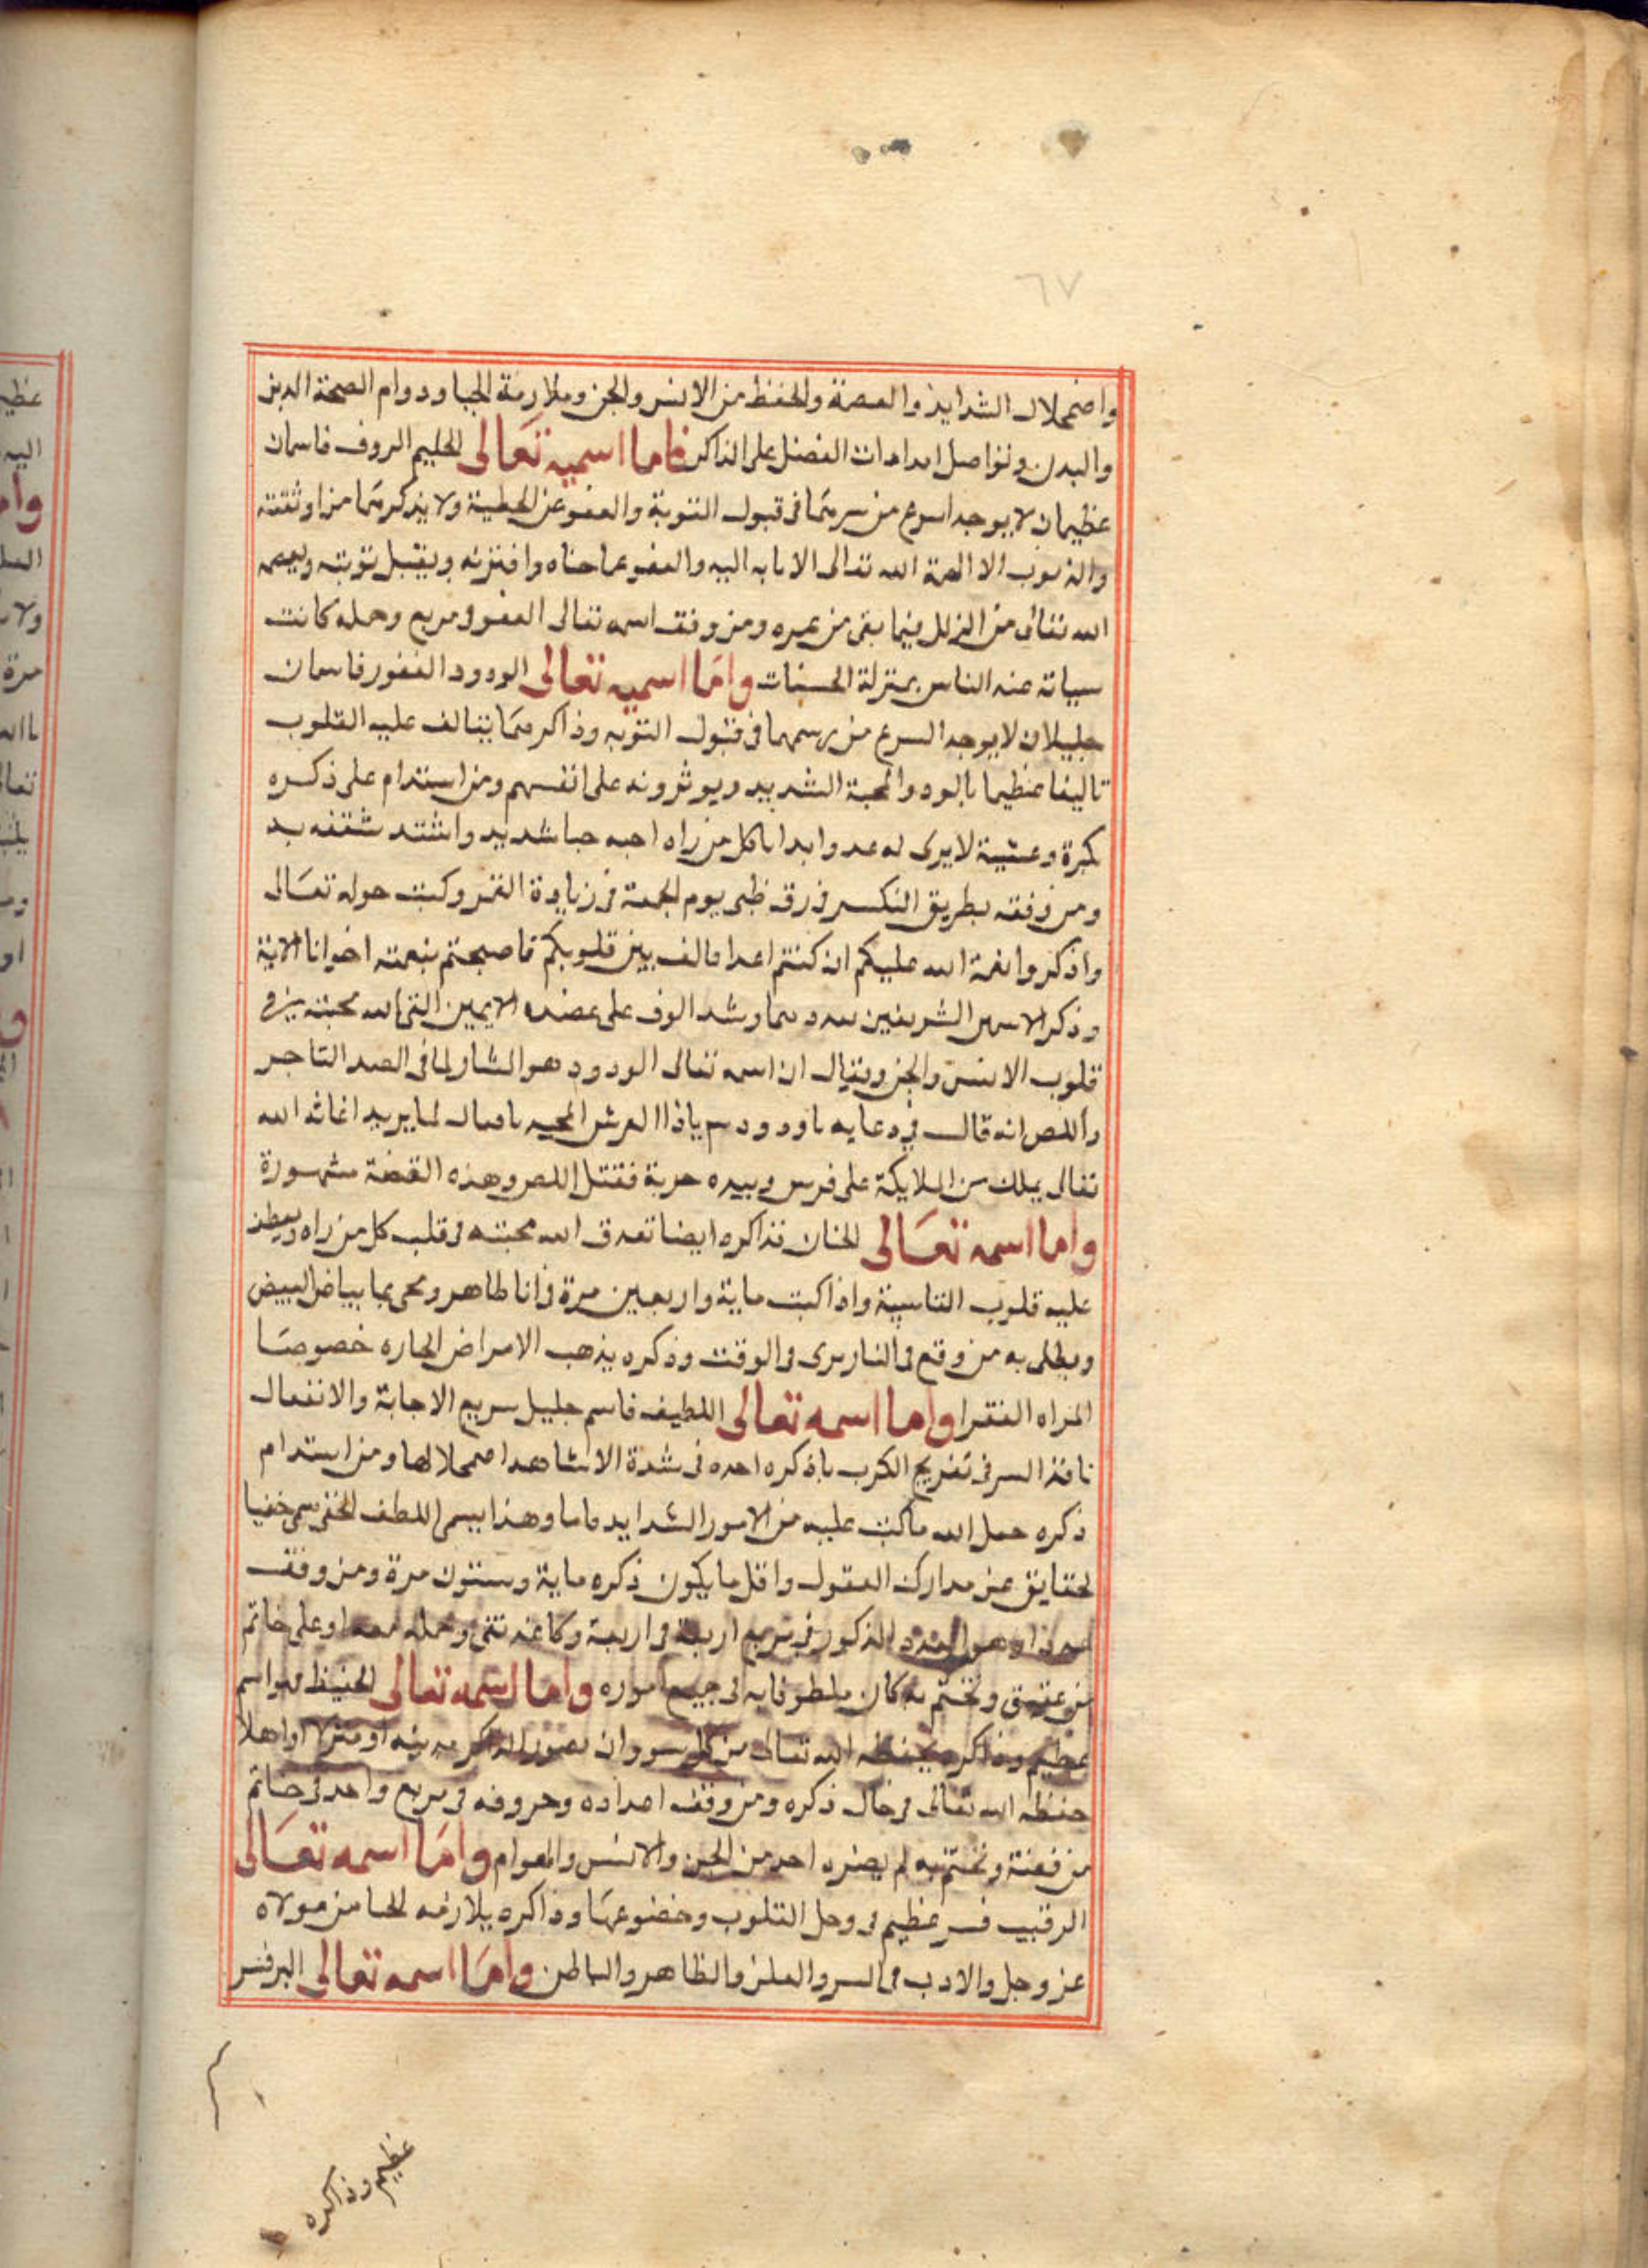 ٦٧
واضمحلال الشدايد والعصمة والحفظ من الانس والجن وملازمة الحبا ودوام الصحة الدين
والبدن وتواصل امدادات الفضل على الذاكر فاما اسميه تعالى الحليم الروف فاسمان
عظيمان لا يوجد اسرع من سرهما فى قبول التوبة والعفو عن الخطية ولا يذكرهما من اوثقته
والذنوب الا الهمه الله تعالى الانابه اليه والعفو عما جناه وافتزنه ويقبل توبته ويعصمه
الله تعالى من الزلل فيما بقى من عمره ومن وفق اسمه تعالى العفو فى مربع وحمله كانت
سياته عند الناس بمنزلة الحسنات واما اسميه تعالى الودود الغفور فاسمان
جليلان لا يوجد اسرع من رسمهما فى قبول التوبه وذاكرهما يتالف عليه القلوب
تاليفا عظيما بالود والمحبة الشديد ويوثرونه على انفسهم ومن استدام على ذكره
بكرة وعشية لا يرى له عدوا ابدا بل كل من راه احبه حبا شديد واشتد شغفه به
ومن وفقه بطريق التكسير فى رق ظبى يوم الجمعة فى زيادة القمر وكتب حوله تعالى
واذكروا نعمة الله عليكم اذ كنتم اعدا فالف بين قلوبكم فاصبحتم بنعمته اخوانا الاية
وذكر الاسمين الشريفين وشد الوفق على عضده الايمن القى الله محبته فى
قلوب الانس والجن ويقال ان اسمه تعالى الودود هو المشار لما فى قصد التاجر
واللص انه قال فى دعايه يا ودود يا ذا العرش المجيد يا فعال لما يريد اغاثه الله
تعالى بملك من الملايكة على فرس وبيده حربة فقتل اللص وهذه القصة مشهورة
واما اسمه تعالى الحنان فذاكره ايضا تعدق الله محبته فى قلب كل من راه ويعطف
عليه قلوب القاسية واذا كبت ماية واربعين مرة فى انا طاهر ومحى بما بياض البيض
ويطلى به من وقع فى النار برى فى الوقت وذكره يذهب الامراض الحاره خصوصا
المراه الفقرا واما اسمه تعالى اللطيف فاسم جليل سريع الاجابة والانفعال
نافذ السر فى تفريج الكرب ما ذكره احد فى شدة الا شاهد اضمحلالها ومن استدام
ذكره حمل الله ماكتب عليه من الامور الشدايد وهذا يسمى اللطف الخفى سمى خفيا
لحقايق عن مدارك العقول واقل ما يكون ذكره ماية وستون مرة ومن وفق
وهو العدد المذكور فى مربع اربعة فى اربعة وكاغد نقى وحمله معه او على خاتم
من عقيق وتختم به كان ملطوفا به فى جميع اموره واما اسمه تعالى الحفيظ فهو اسم
عظيم وذاكره يحفظه الله تعالى من كل سو وان تصور الذاكر مدينه او منزلا او اهلا
حفظه الله تعالى فى حال ذكره ومن وفق اعداده وحروفه فى مربع واحد فى خاتم
من فضة وتختم به لم يضره احد من الجن والانس والهوام واما اسمه تعالى
الرقيب فسر عظيم فى وجل القلوب وخضوعها وذاكره يلازمه الحيا من مولاه
عز وجل والادب فى السر والعلن والظاهر والباطن واما اسمه تعالى البر فسر
عظيم وذاكره